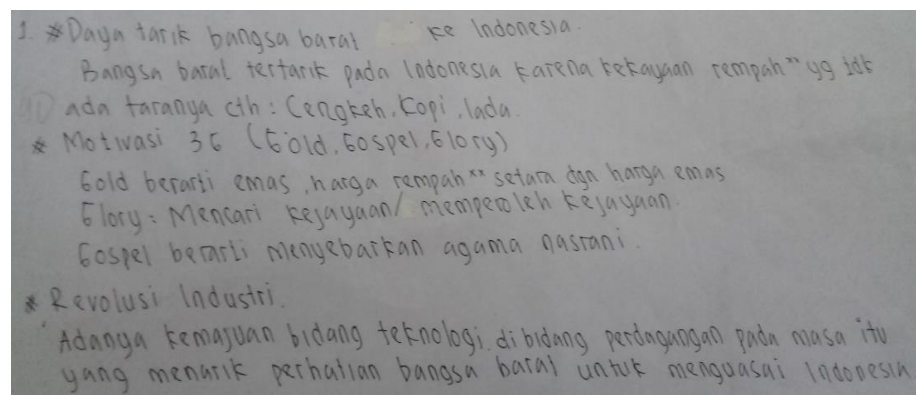 1. * Daya tarik bangsa barat ke Indonesia.
Bangsa barat tertarik pada Indonesia karena kekayaan rempah" yg tdk
ada taranya cth : Cengkeh, Kopi, lada.
* Motivasi 3G (Gold, Gospel, Glory)
Gold berarti emas, harga rempah" setara dgn harga emas
Glory : Mencari kejayaan / memperoleh kejayaan.
Gospel berarti menyebarkan agama nasrani.
* Revolusi Industri.
Adanya kemajuan bidang teknologi, di bidang perdagangan pada masa itu
yang menarik perhatian bangsa barat untuk menguasai Indonesia